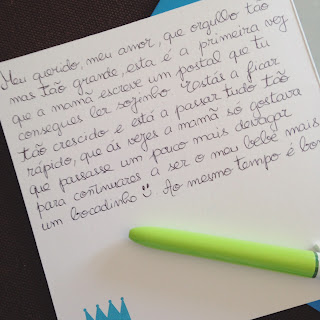 Meu querido, meu amor, que orgulho tão
mas tão grande, esta é a primeira vez
que a mamã escreve um postal que tu
consegues ler sozinho. Estás a ficar
tão crescido e está a passar tudo tão
rápido, que às vezes a mamã só gostava
que passasse um pouco mais devagar
para continuares a ser o meu bebé mais
um bocadinho :). Ao mesmo tempo é bom